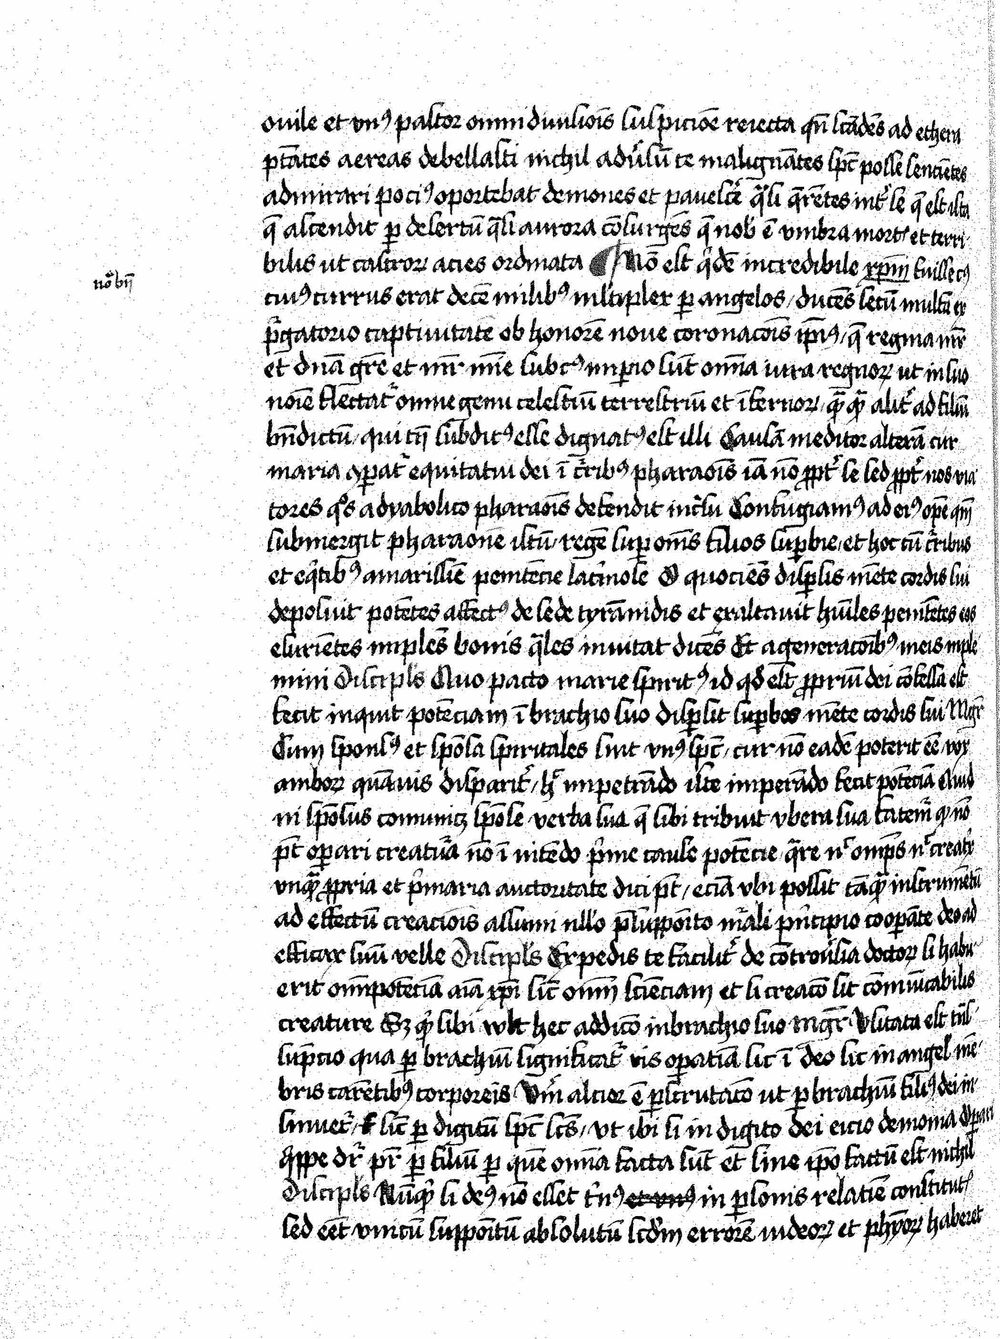 ouile et vnꝰ pastor omni diuisiois̄ suspicioē reiecta qn̄ scādēs ad ethera
ptāтes aereas debellasti nichil adu̾sū te malignātes spc̄ posse sencientes
admirari pociꝰ oportebat demones et pauesce̾ q̾si q̄rētes int̾ se q̄ est ista
q̄ ascendit ꝑ desertū q̄si aurora cōsurgēs q̄ nob̾ ē vmbra mort̾ et terri-
bilis ut castroꝝ acies ordinata ¶ Nō est q̾dē incredibile xpm̄ fuisse
no bn̄
cuiꝰ currus erat decē milibꝰ mltiplex ꝑ angelos / ducēs secū multā ex
pᷓgatorio captiuitatē ob honorē noue coronacōis ip̄iꝰ / q̄ regina mr̄
et dn̄a gr̄e et mr̄ mīe subcꝰ imperio sūt omīa iura regnoꝝ ut in suo
noīe flectat̾ omne genu celestiū terrestriū et īfernoꝝ / q̄ q̄ alit̾ ad filiū
bn̄dictū / qui t subditꝰ esse dignatꝰ est illi Causā meditor alterā cur
maria ꝯꝑat̾ equitatui dei ī c̾ribꝰ pharaoīs iā nō ꝓpt̾ se sed ꝓpt̾ nos via
tores q̊s a dyabolico pharaoīs defendit inc̾su Confugiamꝰ ad eiꝰ opē qm̄
submergit pharaonē istū / regē suꝑ om̄s filios suꝑbie / et hoc cū c̾ribus
et eq̾tibꝰ amarissīe penitēcie lac̾mose Et quociēs disꝑsis mēte cordis sui
deposuit potētes affectꝰ de sede tyrānidis et exaltauit huīles penitētes eos
esuriētes implēs bonis q̄les inuitat dicēs Et a generacōibꝰ meis imple
mini Discipls̄ Quo pacto marie spiritꝰ id qd̾ est ꝓpriū dei cōfessa est
fecit inquit potēciam ī brachio suo disꝑsit suꝑbos mēte cordis sui Mgr̄
Cum sponsꝰ et spōsa spiritales sint vnꝰ spc̄ / cur nō eadē poterit eē / vox
amboꝝ quāuis disparit̾ / hᷓ impetrādo iste imperādo fecit potēciā Quid
ni spōsus comunicꝫ spōse / verba sua q̄ sibi tribuit vbera sua fatem̾ ꝙ nō
pt̄ oꝑari creatu̾a nō ī intēdo p̾me cause potēcie / q̄re n̾ om̄ps n̾ creat̾
vnq̄ ꝓpria et p̾maria auctoritate dici pt̄ / eciā vbi possit tāq̄ instrumētū
ad effectū creaciois̄ assumi nllo p̄supposito m̾ali pn̾cipio cooꝑante deo ad
efficax suū velle Discipls̄ Expedis te facilit̾ de cōtrou̾sia doctoꝝ si habu
erit omīpotēciā aīa xpī sic̄ oīm scīeciam et si creacō sit cōmūicabilis
creature Sꝫ q̾ sibi vult hec addicō in brachio suo Mgr̄ Usitata est tn̄s
supcio qua ꝑ brachiū significat̾ vis oꝑatiua sic ī deo sic in angel̾ mē-
bris carētibꝰ corporeis Vn̾ alcior ē ꝑscrutacō ut ꝑ brachiū filiꝰ dei in
sinuet̾ / sic̄ ꝑ digitū spc̄ scs̄ / vt ibi si in digito dei eicio demonia Oꝑari
q̾ppe dr̄ pr̄ ꝑ filiū ꝑ quē omīa facta sūt et sine ip̄o factū est nichil
Discipls̄ Nūq̾ si deꝰ nō esset t̾nꝰ et vnꝰ in ꝑsonis relatīe constitut̾
sed eēt vnicū suppoītū absolutū scd̾m errorē iudeoꝝ et phyoꝝ haberet